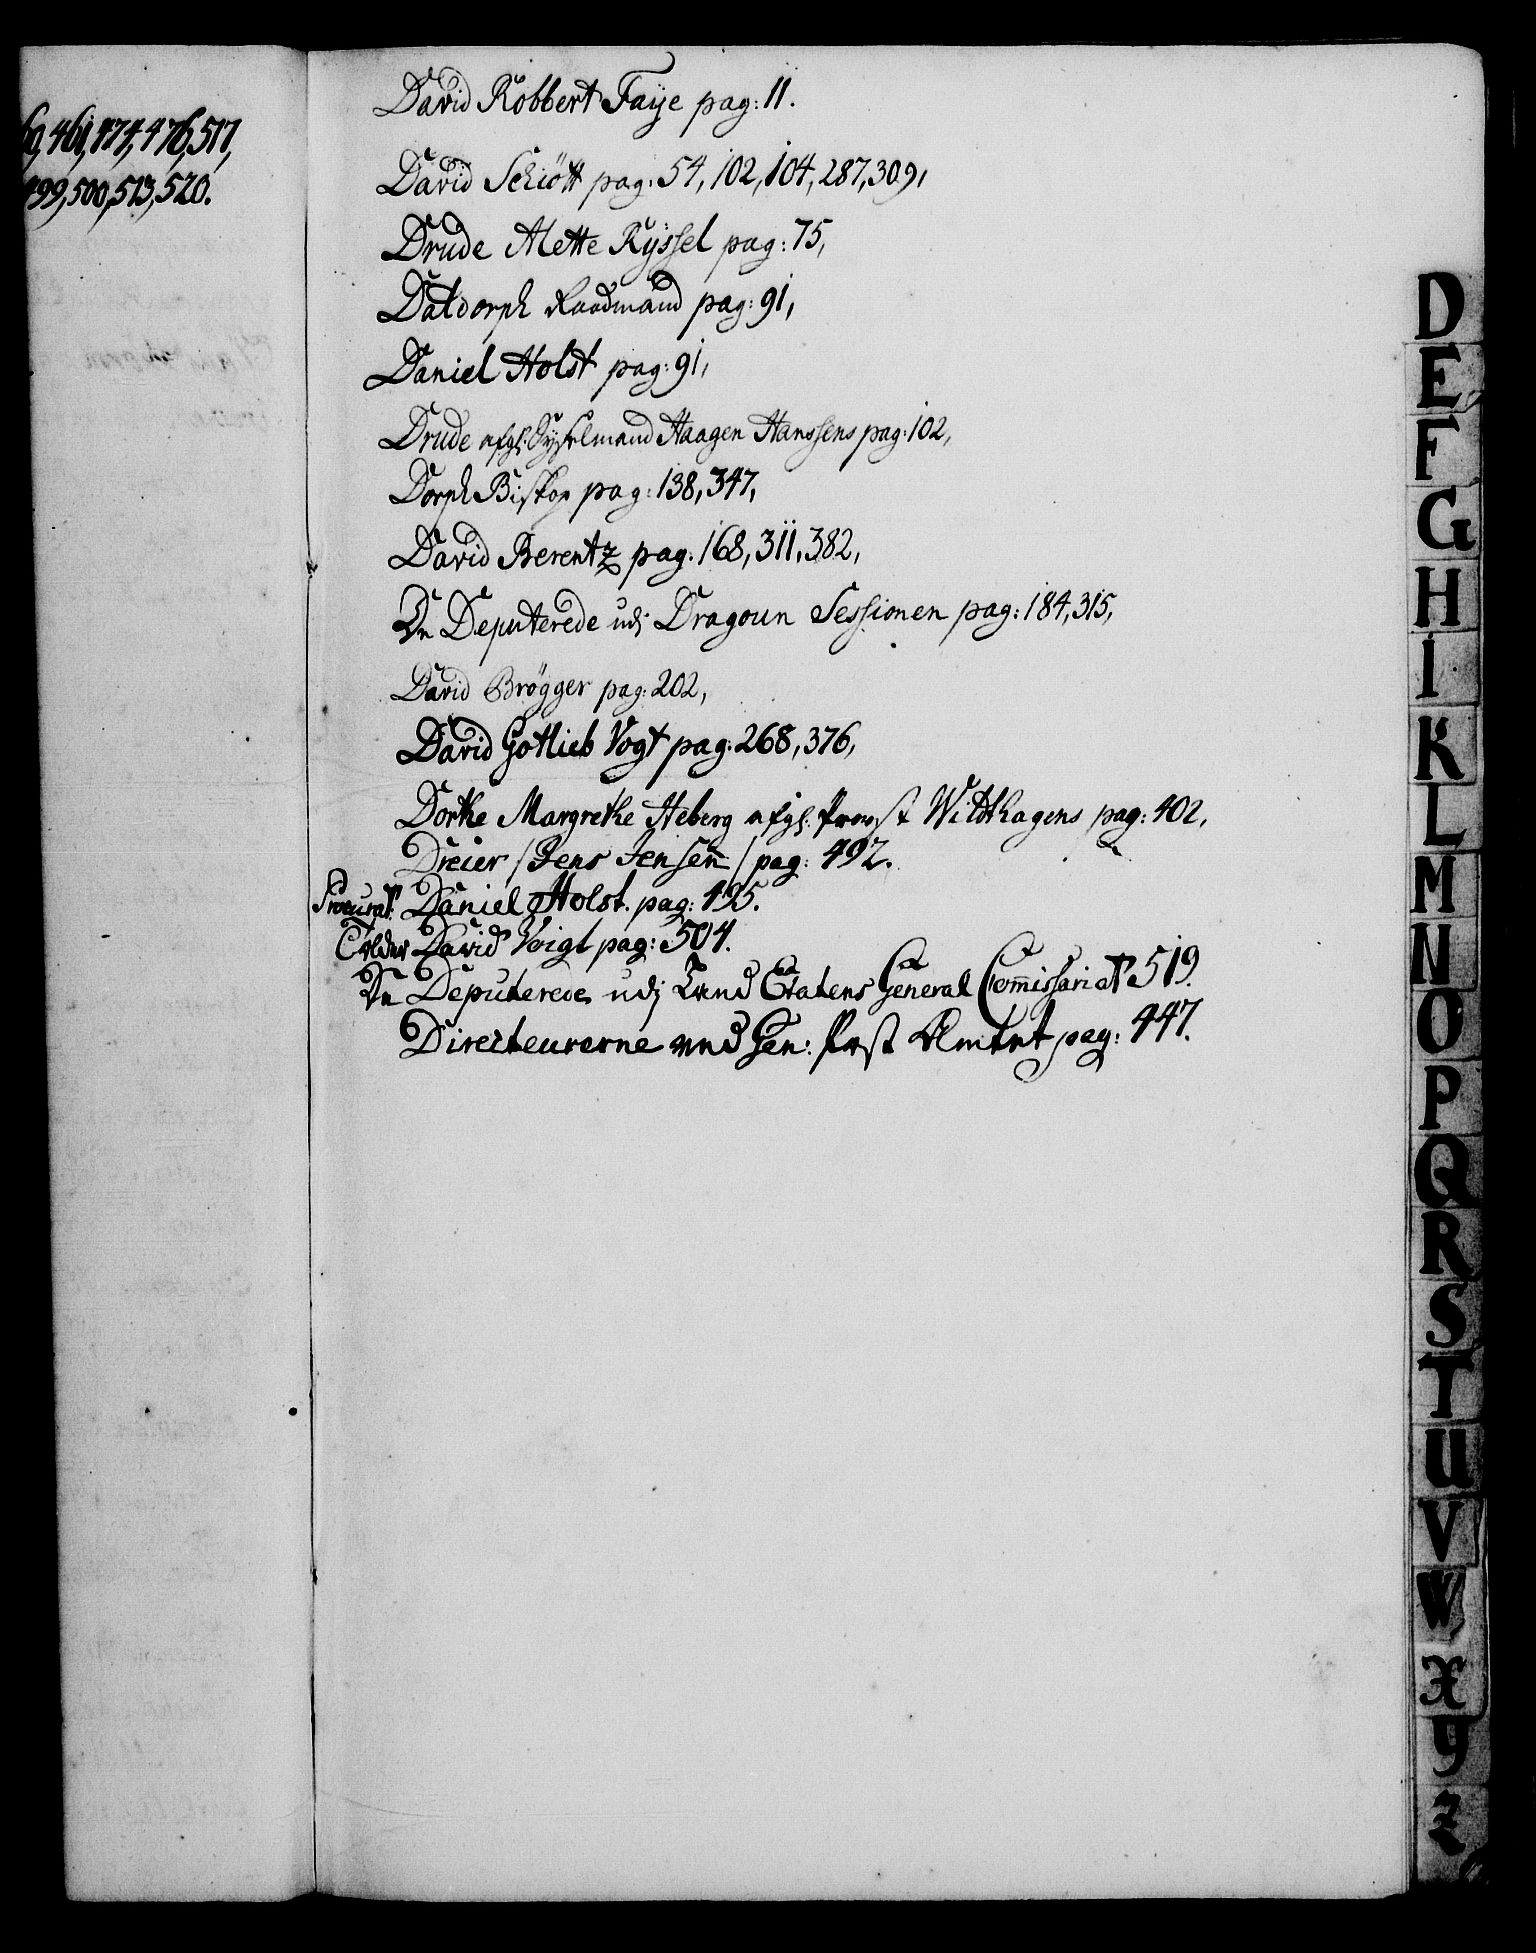 461, 474, 476, 517,
499, 500, 513, 520.
David Robbert Faye pag: 11.
David Schiött pag: 54, 102, 104, 287, 309,
Drude Mette Ryssel pag: 75,
Datdorph Raadmand pag: 91,
Daniel Holst pag: 91,
Drude afgl. Sysselmand Haagen Hanssens pag: 102,
Dorph Biskop pag: 138, 347,
David Berentz pag. 168, 311, 382,
De Deputerede udj Dragoun Sessionen pag: 184, 315,
David Brögger pag: 202,
David Gotlieb Vogt pag: 268, 376,
Dorthe Margrethe Heberg afgl. Provst Wildthagens pag: 402,
Dreier / Jens Jensen / pag: 492.
Procurat: Daniel Holst. pag: 495.
Tolder David Voigt pag: 504.
De Deputerede udj Land Etatens General Commissariat 519.
Directeurerne ved Gen: Post Amtet pag: 447.
D
E
F
G
H
I
K
L
M
N
O
P
Q
R
S
T
U
V
W
X
y
Z